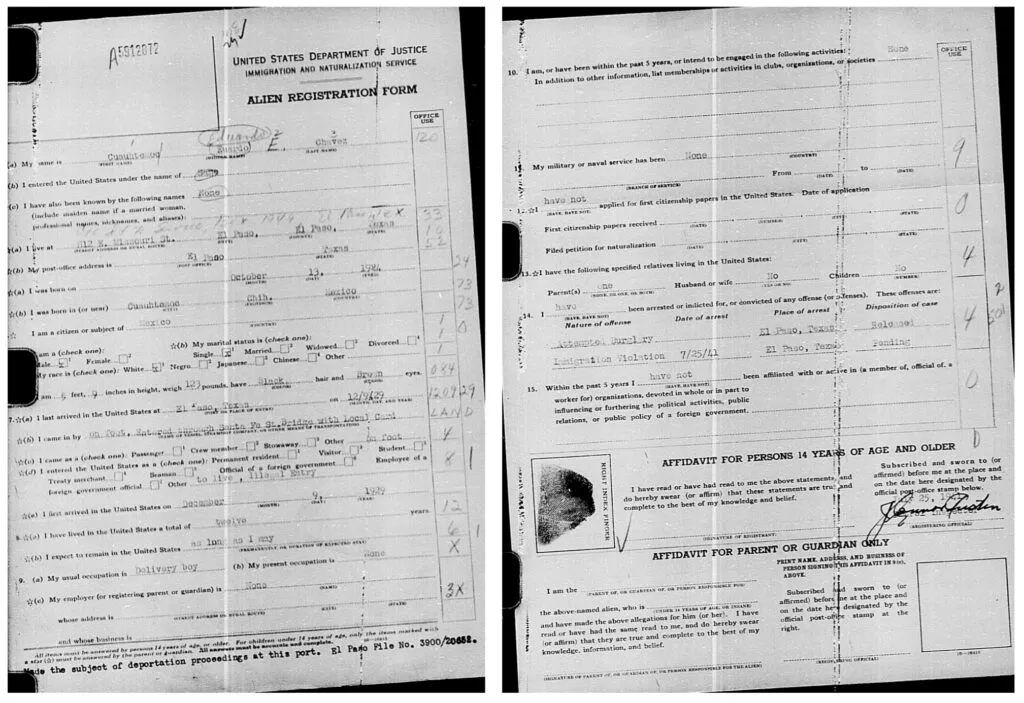 A5912072
UNITED STATES DEPARTMENT OF JUSTICE
IMMIGRATION AND NATURALIZATION SERVICE
ALIEN REGISTRATION FORM
OFFICE USE
1 Eduardo 2 3 120
(a) My name is Cuauhtemoc Euardo E. Chavez
(FIRST NAME) (MIDDLE NAME) (LAST NAME)
(b) I entered the United States under the name of Same
(c) I have also been known by the following names None
(include maiden name if a married woman,
professional names, nicknames, and aliases):
33
☆(a) I live at 812 E. Missouri St. El Paso, El Paso, Texas
(STREET ADDRESS OR RURAL ROUTE) (CITY) (COUNTY) (STATE)
52
☆(b) My post-office address is El Paso Texas
(POST OFFICE) (STATE)
24
☆(a) I was born on October 13, 1924
(MONTH) (DAY) (YEAR)
73
☆(b) I was born in (or near) Cuauhtemoc Chih. Mexico
(CITY) (PROVINCE) (COUNTRY)
73
☆ I am a citizen or subject of Mexico
(COUNTRY)
1 0
am a (check one): ☆(b) My marital status is (check one):
Male X 1 Female 2 Single X 1 Married 2 Widowed 3 Divorced 4
1
My race is (check one): White X 1 Negro 2 Japanese 3 Chinese 4 Other
1
am 5 feet, 9 inches in height, weigh 123 pounds, have Black hair and Brown eyes.
(COLOR) (COLOR)
084
7.☆(a) I last arrived in the United States at El Paso, Texas on 12/9/29
(PORT OR PLACE OF ENTRY) (MONTH, DAY, AND YEAR)
120929
(b) I came in by on foot. Entered through Santa Fe St. Bridge with Local Card
(NAME OF VESSEL, STEAMSHIP COMPANY, OR OTHER MEANS OF TRANSPORTATION)
LAND
☆(c) I came as a (check one): Passenger 1 Crew member 2 Stowaway 3 Other on foot
4
☆(d) I entered the United States as a (check one): Permanent resident 1 Visitor 2 Student 3
Treaty merchant Seaman Official of a foreign government Employee of a
foreign government official Other to live, illegal Entry
8 1
☆(e) I first arrived in the United States on December 9, 1929
(MONTH) (DAY) (YEAR)
8.☆(a) I have lived in the United States a total of twelve years.
12
☆(b) I expect to remain in the United States as long as I may
(PERMANENTLY OR DURATION OF EXPECTED STAY)
6 1
9. (a) My usual occupation is Delivery boy (b) My present occupation is None
X
☆(c) My employer (or registering parent or guardian) is None
(NAME)
3X
whose address is
(STREET ADDRESS OR RURAL ROUTE) (CITY) (STATE)
and whose business is
All items must be answered by persons 14 years of age, or older. For children under 14 years of age, only the items marked with
a star (☆) must be answered by the parent or guardian. All answers must be accurate and complete.
Made the subject of deportation proceedings at this port. El Paso File No. 3900/20852.
OFFICE USE
10. I am, or have been within the past 5 years, or intend to be engaged in the following activities: None
In addition to other information, list memberships or activities in clubs, organizations, or societies
My military or naval service has been None
(COUNTRY)
9
From to
(BRANCH OF SERVICE) (DATE) (DATE)
12.☆I have not applied for first citizenship papers in the United States. Date of application
(HAVE, HAVE NOT)
0
First citizenship papers received
(DATE) (NUMBER) (CITY) (STATE)
Filed petition for naturalization
(DATE) (CITY) (STATE)
13.☆I have the following specified relatives living in the United States:
4
Parent(s) one Husband or wife No Children No
(NONE, OR ONE, OR BOTH) (YES OR NO) (NUMBER)
14. I have been arrested or indicted for, or convicted of any offense (or offenses). These offenses are:
(HAVE, HAVE NOT)
2
Nature of offense Date of arrest Place of arrest Disposition of case
4
Attempted Burglry El Paso, Texas Released
Immigration Violation 7/25/41 El Paso, Texas Pending
15. Within the past 5 years I have not been affiliated with or active in (a member of, official of, a
(HAVE, HAVE NOT)
0
worker for) organizations, devoted in whole or in part to
influencing or furthering the political activities, public
relations, or public policy of a foreign government.
AFFIDAVIT FOR PERSONS 14 YEARS OF AGE AND OLDER
RIGHT INDEX FINGER
I have read or have had read to me the above statements, and
do hereby swear (or affirm) that these statements are true and
complete to the best of my knowledge and belief.
(SIGNATURE OF REGISTRANT)
Subscribed and sworn to (or
affirmed) before me at the place and
on the date here designated by the
official post-office stamp below.
(REGISTERING OFFICIAL)
AFFIDAVIT FOR PARENT OR GUARDIAN ONLY
PRINT NAME, ADDRESS, AND BUSINESS OF
PERSON SIGNING THIS AFFIDAVIT IN 9(c),
ABOVE.
I am the
(PARENT OF, OR GUARDIAN OF, OR PERSON RESPONSIBLE FOR)
the above-named alien, who is
(UNDER 14 YEARS OF AGE, OR INSANE)
and have made the above allegations for him (or her). I have
read or have had the same read to me, and do hereby swear
(or affirm) that they are true and complete to the best of my
knowledge, information, and belief.
(SIGNATURE OF PARENT OF, OR GUARDIAN OF, OR PERSON RESPONSIBLE FOR THE ALIEN)
Subscribed and sworn to (or
affirmed) before me at the place and
on the date here designated by the
official post-office stamp at the
right.
(REGISTERING OFFICIAL)